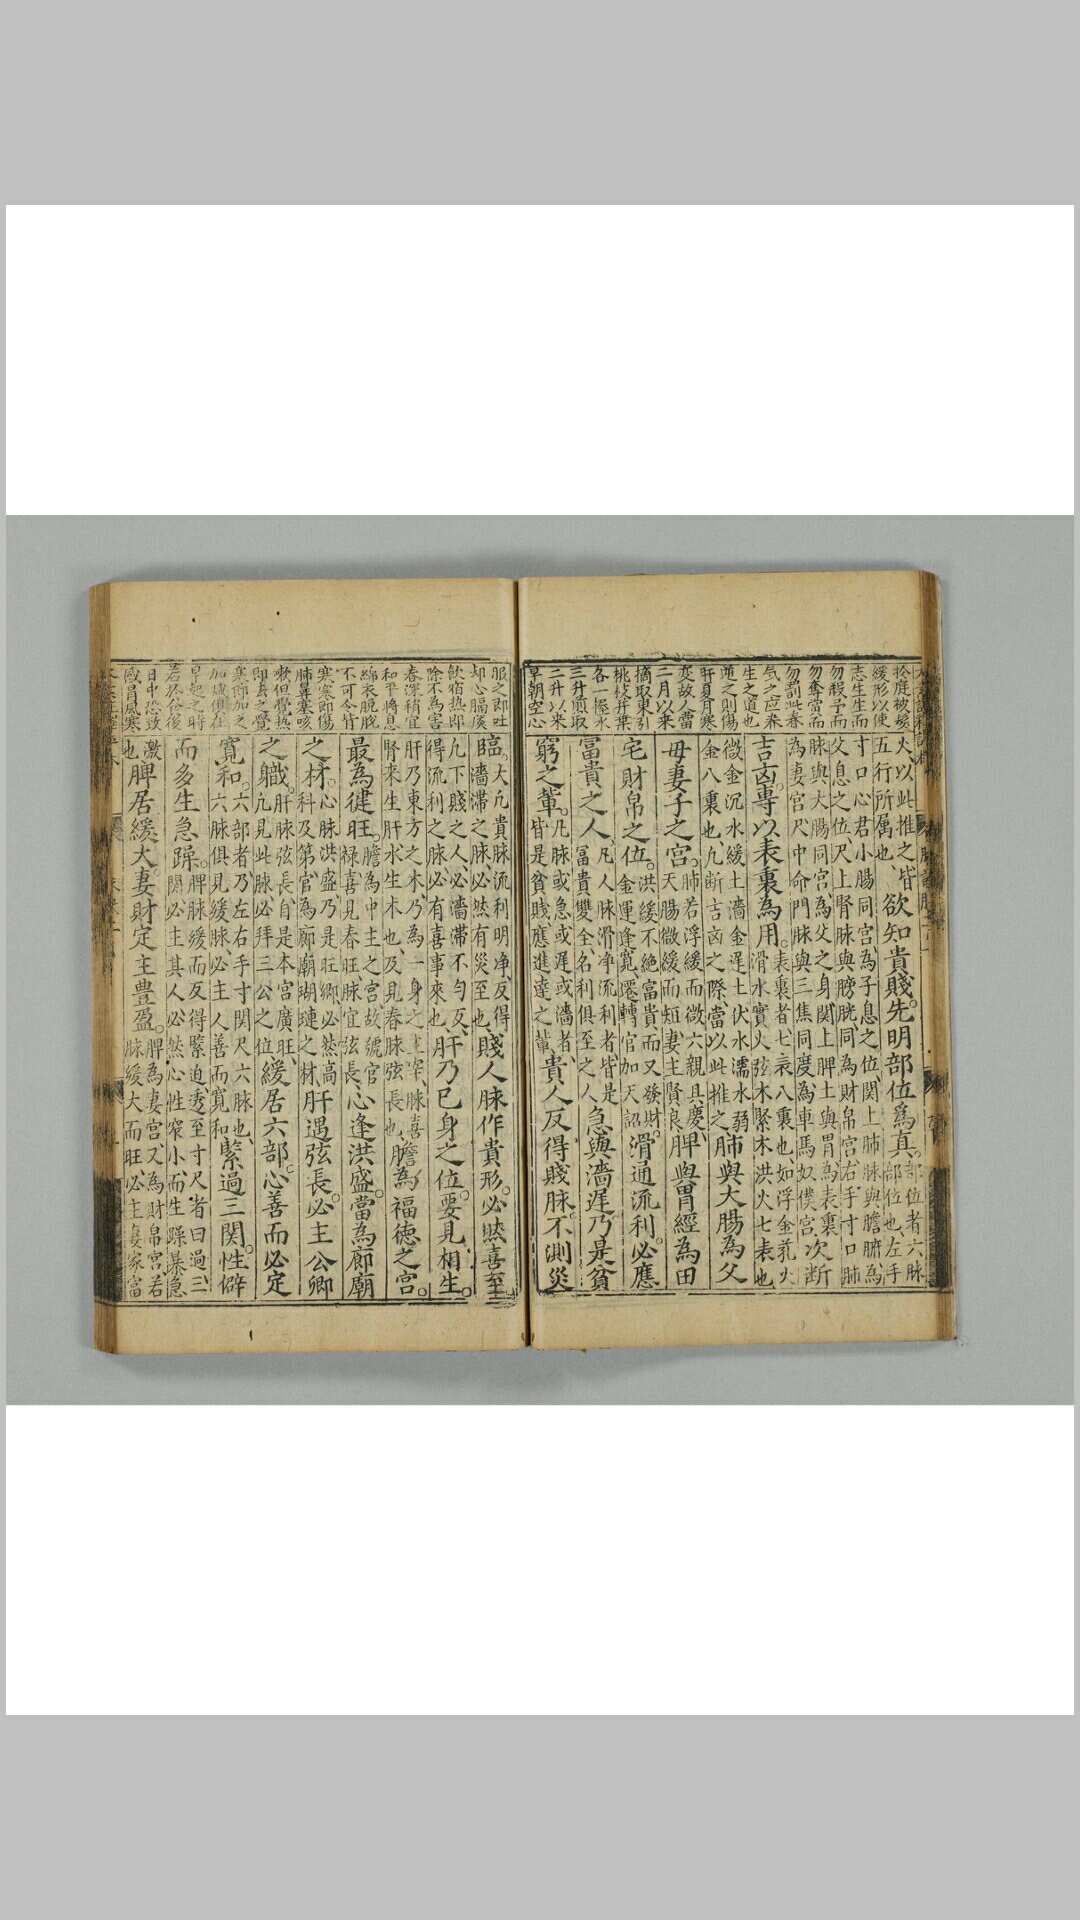 於庭被髮
緩形以使
志生生而
勿殺予而
勿奪賞而
勿罰此春
氣之應養
生之道也
逆之則傷
肝夏月寒
變故人當
二月以來
摘取東引
桃枝并葉
各一握水
三升煎取
二升以來
早朝空心
火以此推之皆五行所属也欲知貴賤先明部位為真。部位者六脉部位也左手
寸口心君小腸同宮為子息之位関上肺脉與膽腑為父息之位尺上腎脉與膀胱同為財帛宮右手寸口肺
脉與大腸同宮為父之身関上脾土與胃為表裏為妻宮尺中命門脉與三焦同度為車馬奴僕宮次断
吉凶專以表裏為用。表裏者七表八裏也如浮金芤火滑水實火弦木緊木洪火七表也
微金沉水緩土濇金遲土伏水濡水弱金八裏也凡断吉凶之際當以此推之肺與大腸為父
母妻子之宮。肺若浮緩而微六親具慶大腸微緩而短妻主賢良脾與胃經為田
宅財帛之位。洪緩不絶富貴而又發財金運逢寬遷轉官加天詔滑通流利。必應
富貴之人凡人脉滑净流利者皆是富貴雙全名利俱至之人急與濇遲乃是貧
窮之輩。凡脉或急或遲或濇者皆是貧賤應進達之輩貴人反得賤脉。不測災
服之即吐
却心膈痰
飲宿热即
除不為害
春深稍宜
和平將息
綿衣晚脱
不可令背
寒寒即傷
肺鼻塞咳
嗽但覺热
即去之覺
寒即加之
加減俱在
早起之時
若於食後
日中恐致
感冒風寒
臨。大凡貴脉流利明净反得濇滞之脉必然有災至也賤人脉作貴形。必然喜至。
凡下賤之人必濇滞不勻反得流利之脉必有喜事來也肝乃己身之位。要見相生。
肝乃東方之木乃為一身之主宰脉喜腎來生肝水生木也及見春脉弦長也膽為福德之宮。
最為健旺膽為中主之宮故號官禄喜見春旺脉宜弦長心逢洪盛。當為廊廟
之材。心脉洪盛乃是旺鄉必然高科及第官為廊廟瑚璉之材肝遇弦長。必主公卿
之職。肝脉弦長自是本宮廣旺凡見此脉必拜三公之位緩居六部。心善而必定
寬和。六部者乃左右手寸関尺六脉也六脉俱見緩脉必主人善而寬和緊過三関。性僻
而多生急躁。脾脉緩而反得緊迫透至寸尺者曰過三関必主其人必然心性窄小而生躁暴急
激也脾居緩大。妻財定主豊盈。脾為妻宮又為財帛宮若脉緩大而旺必主妻家富